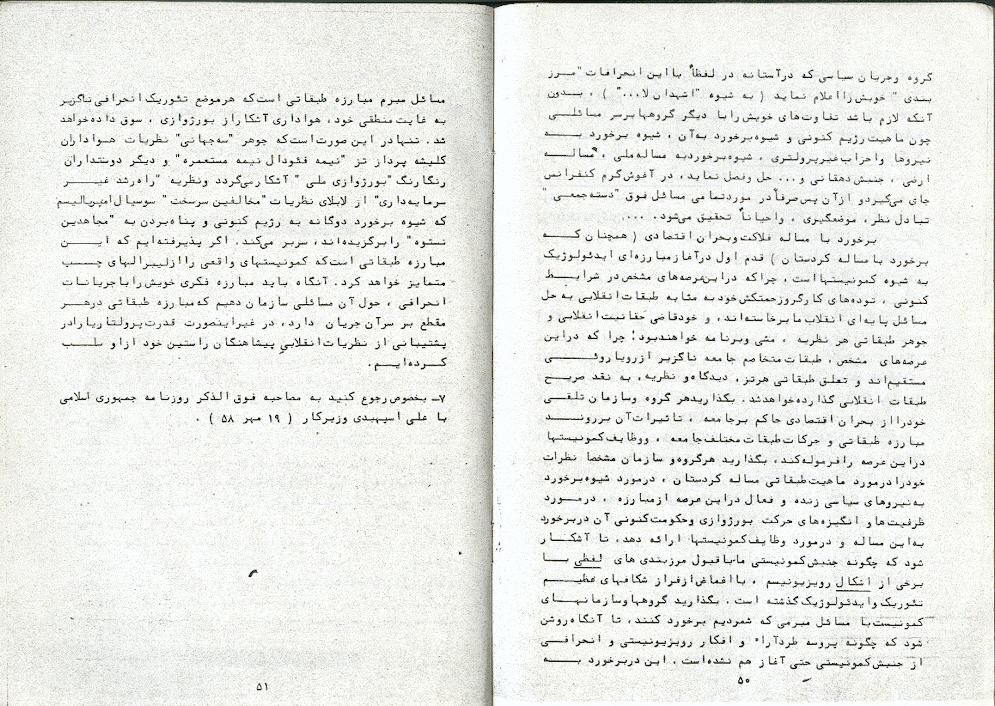 گروه وجریان سیاسی که درآستانه در لفظاً بااین انحرافات "مرز
بندی" خویش رااعلام نماید ( به شیوه "اشهدان لا..." ) ، بدون
آنکه لازم باشد تفاوت‌های خویش رابا دیگر گروههابرسر مسائلی
چون ماهیت رژیم کنونی و شیوه‌برخورد به‌آن ، شیوه برخورد به
نیروها واحزاب غیرپرولتری ، شیوه‌برخوردبه مساله‌ملی ، مساله
ارضی ، جنبش دهقانی و... حل وفصل نماید، در آغوش گرم کنفرانس
جای می‌گیردو ازآن پس صرفاً در موردتمامی مسائل فوق "دسته‌جمعی"
تبادل نظر، موضعگیری ، واحیاناً تحقیق می‌شود. ...
برخورد با مساله فلاکت وبحران اقتصادی ( همچنان که
برخورد بامساله کردستان ) قدم اول درآغازمبارزه‌ای ایدئولوژیک
به شیوه کمونیستهااست ، چراکه دراین‌عرصه‌های مشخص‌در شرایط
کنونی ، توده‌های کارگروزحمتکش‌خودبه مثابه طبقات انقلابی به حل
مسائل پایه‌ای انقلاب مابرخاسته‌اند، و خودقاضی حقانیت‌انقلابی و
جوهر طبقاتی هر نظریه ، مشی وبرنامه خواهندبود؛ چرا که دراین
عرصه‌های مشخص ، طبقات متخاصم جامعه ناگزیر ازرویاروئی
مستقیم‌اند و تعلق طبقاتی هرتز، دیدگاه‌و نظریه، به نقد صریح
طبقات انقلابی گذارده‌خواهدشد. بگذاریدهر گروه وسازمان تلقی
خودرااز بحران اقتصادی حاکم برجامعه ، تاثیرات‌آن برروند
مبارزه طبقاتی و حرکات‌طبقات مختلف‌جامعه ، ووظایف‌کمونیستها
دراین عرصه رافرموله‌کند، بگذارید هرگروه‌و سازمان مشخصا نظرات
خودرادرمورد ماهیت‌طبقاتی مساله کردستان ، درمورد شیوه‌برخورد
به‌نیروهای سیاسی زنده و فعال دراین‌عرصه ازمبارزه ، درمورد
ظرفیت‌ها و انگیزه‌های حرکت بورژوازی وحکومت‌کنونی آن دربرخورد
به‌این مساله و درمورد وظایف‌کمونیستها ارائه دهد، تا آشکار
شود که چگونه جنبش‌کمونیستی ماباقبول مرزبندی های لفظی با
برخی از اشکال رویزیونیسم ، بااغماض‌ازفراز شکافهای عظیم
تئوریک وایدئولوژیک‌گذشته است . بگذارید گروههاوسازمانهای
کمونیست‌با مسائل مبرمی که شمردیم برخورد کنند، تا آنگاه‌روشن
شود که چگونه پروسه طردآراء و افکار رویزیونیستی و انحرافی
از جنبش‌کمونیستی حتی آغاز هم نشده‌است . این دربرخورد به
۵۰
مسائل مبرم مبارزه طبقاتی است‌که هرموضع تئوریک‌انحرافی ناگزیر
به غایت منطقی خود، هواداری آشکاراز بورژوازی ، سوق داده‌خواهد
شد. تنهادر این صورت‌است‌که جوهر "سه‌جهانی" نظریات هواداران
کلیشه پرداز تز "نیمه فئودال نیمه مستعمره" و دیگر دوستداران
رنگارنگ "بورژوازی ملی" آشکارمی‌گردد ونظریه "راه‌رشد غیر
سرمایه‌داری" از لابلای نظریات "مخالفین سرسخت" سوسیال‌امپریالیسم
که شیوه برخورد دوگانه به رژیم کنونی و پناه‌بردن به "مجاهدین
نستوه" رابرگزیده‌اند، سربر می‌کند. اگر پذیرفته‌ایم که این
مبارزه طبقاتی است‌که کمونیستهای واقعی راازلیبرالهای چپ
متمایز خواهد کرد، آنگاه باید مبارزه فکری خویش راباجریانات
انحرافی ، حول آن مسائلی سازمان دهیم که‌مبارزه طبقاتی درهر
مقطع بر سرآن‌جریان دارد، در غیراینصورت قدرت‌پرولتاریارادر
پشتیبانی از نظریات‌انقلابی پیشاهنگان راستین خود ازاو سلب
کرده‌ایم.
۷- بخصوص رجوع کنید به مصاحبه فوق الذکر روزنامه جمهوری اسلامی
با علی اسپهبدی وزیرکار ( ۱۹ مهر ۵۸ ) .
۵۱